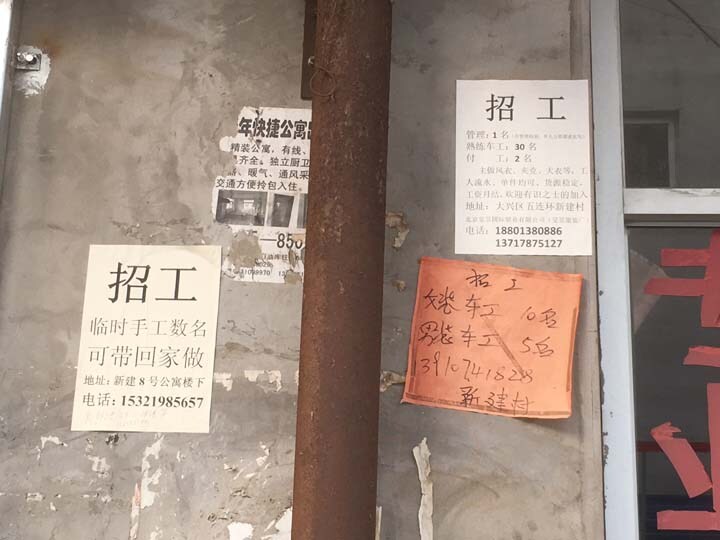 招工
临时手工数名
可带回家做
地址：新建8号公寓楼下
电话：15321985657
年快捷公寓
精装公寓，有线、
齐全。独立厨卫
暖气、通风采
交通方便拎包入住。
招 工
管理：1名
熟练车工：30名
付 工：2名
主做风衣、夹克、大衣等，工
人流水，单件均可，货源稳定，
工资月结，欢迎有识之士的加入
地址：大兴区五连环新建村
电话：18801380886
13717875127
招 工
女装车工 10名
男装车工 5名
13910741828
新建村